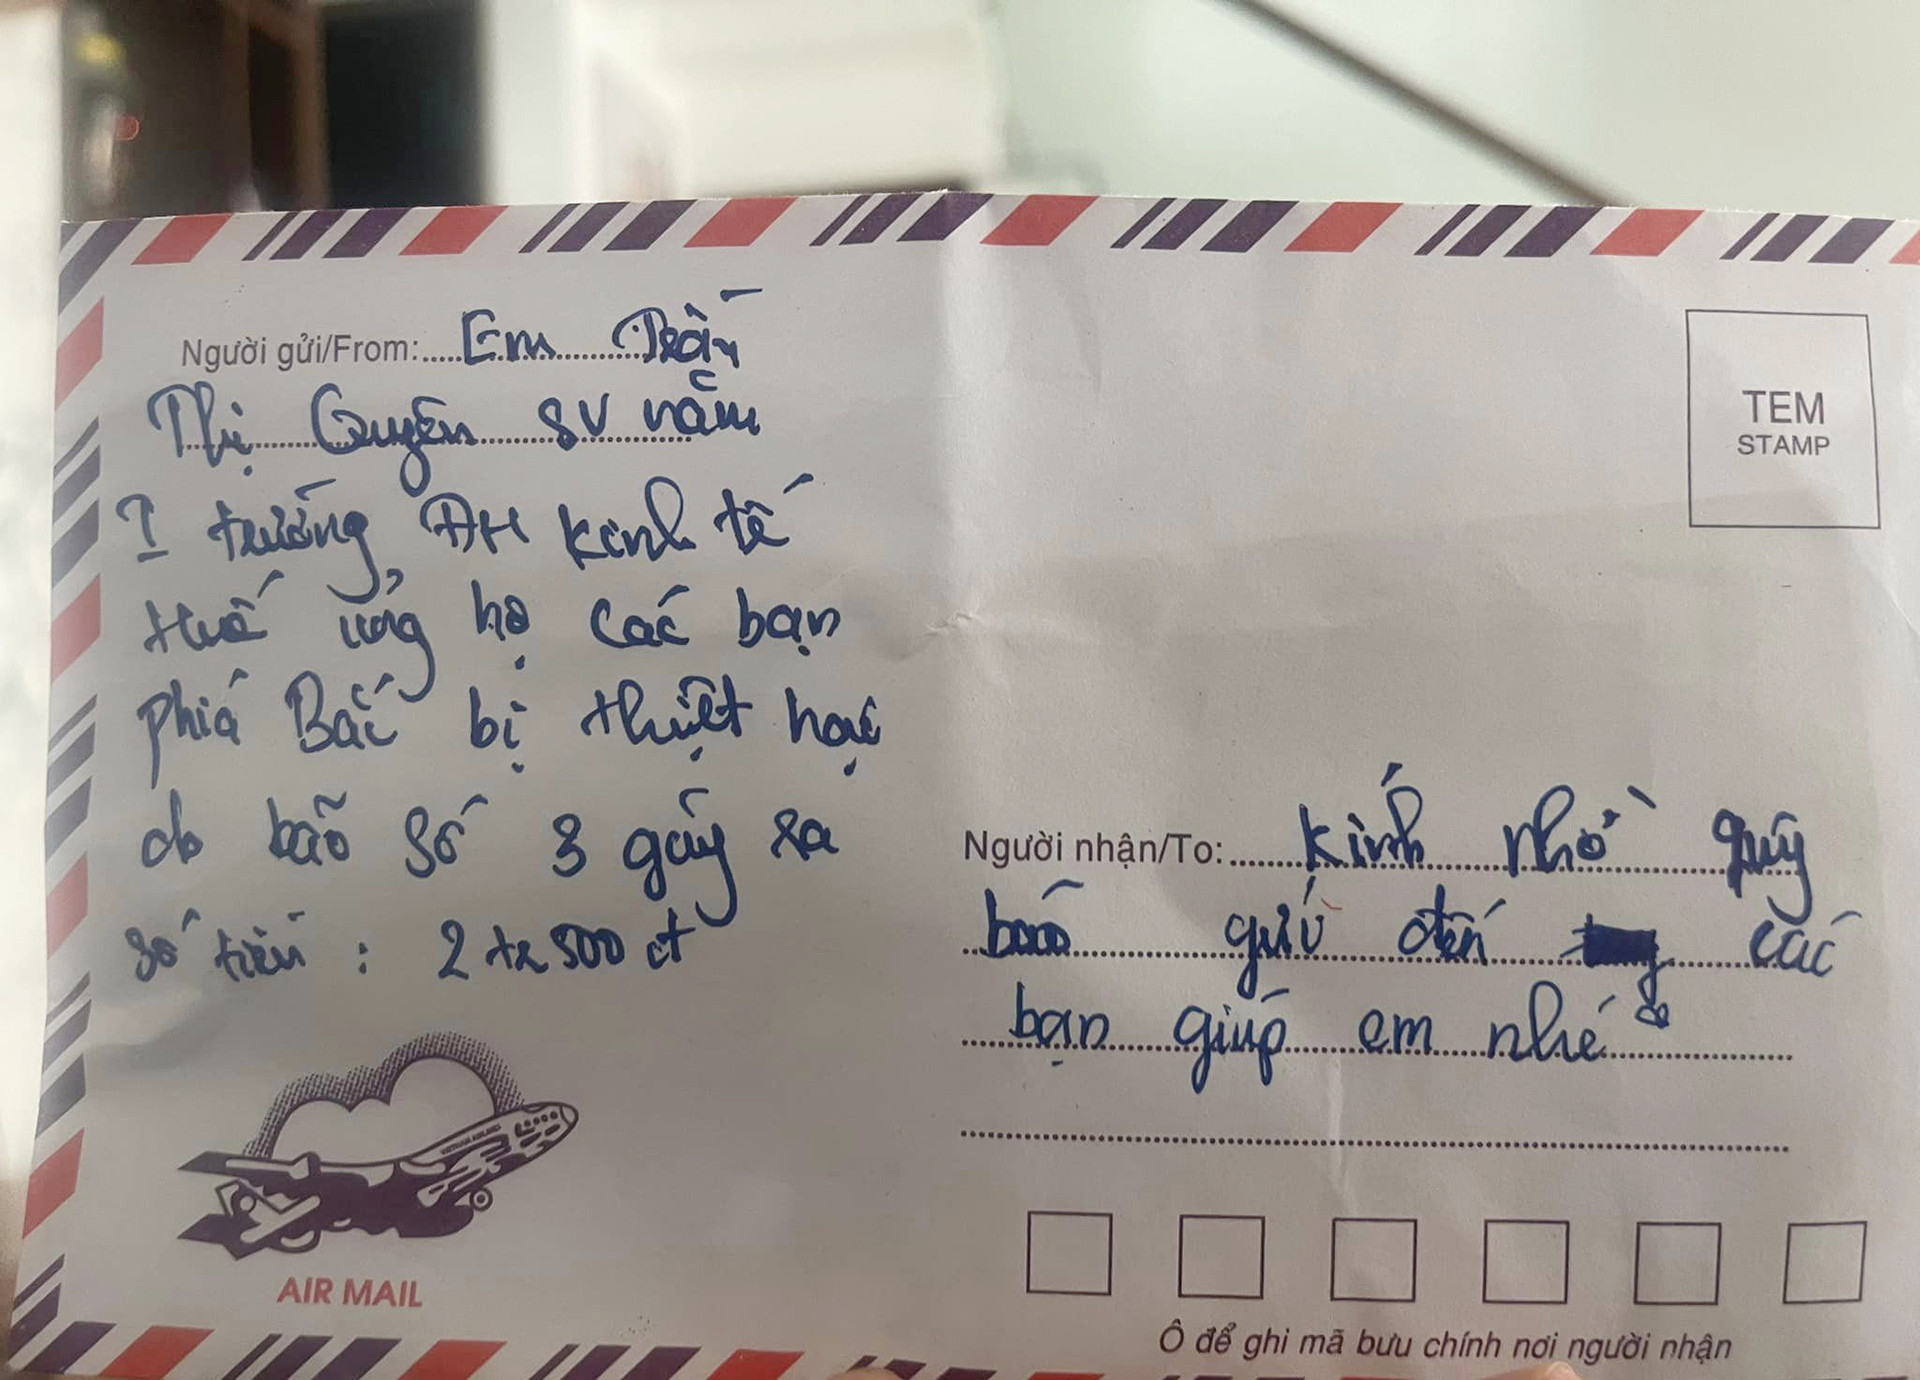 Người gửi/From: Em Trần
Thị Quyên SV năm
I trường ĐH Kinh tế
Huế ủng hộ các bạn
phía Bắc bị thiệt hại
do bão số 3 gây ra
Số tiền : 2 tr 500 đ
TEM
STAMP
Người nhận/To: Kính nhờ quý
báo gửi đến các
bạn giúp em nhé
AIR MAIL
Ô để ghi mã bưu chính nơi người nhận